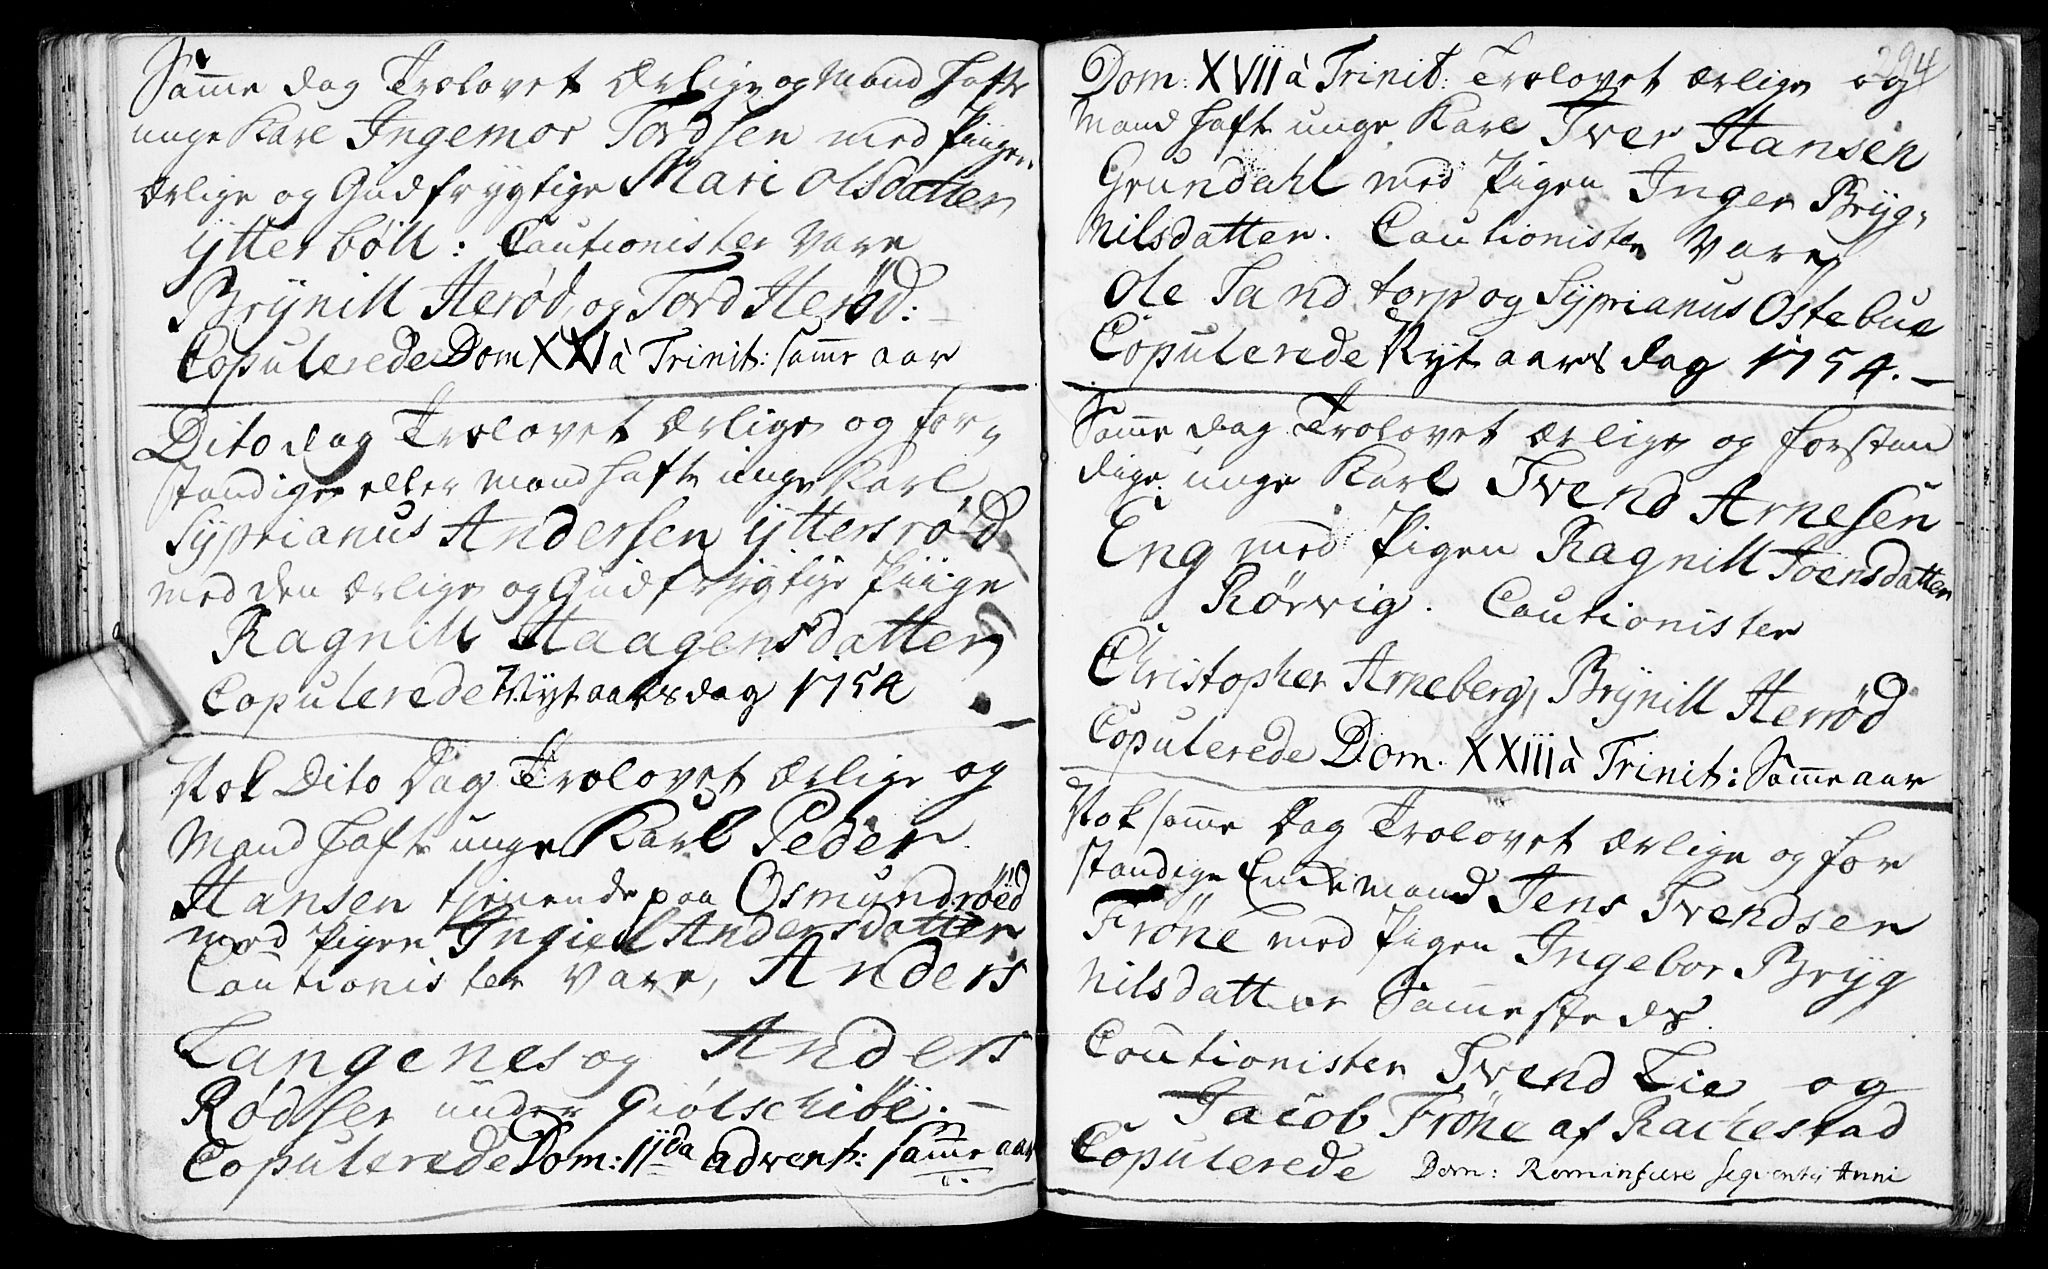 Samme dag Trolovet Ærlige og Mandhafte
unge Karl Ingemor Tordsen med Piigen
ærlige og Gudfrygtige Mari Olsdatter
ytterböll: Cautionister Vare
Brynill Herød, og Tord Herød:
Copulerede Dom XXI à Trinit: samme aar
Dito dag Trolovet Ærlige og for-
standige eller mandhafte unge Karl
Syprianus Andersen ÿttersrød
med den ærlige og Gudfrÿgtige Piige
Ragnill Haagensdatter
Copulerede Nytaarsdag 1754
Nok Dito Dag Trolovet ærlige og
Mandhafte unge Karl Peder
Hansen tjenende paa Osmundrøed
med Pigen Ingield Andersdatter
Cautionister Vare, Anders
Langenes og Anders
Rødsser under
Copulerede Dom: IIda advent: samme aar
294
Dom: XVII à Trinit: Trolovet ærlige og
Mandhafte unge Karl Iver Hansen
Grundahl med Pigen Inger Bryg-
nilsdatter. Cautionister Vare
Ole Sandtorp og Syprianus Østebue
Copulerede Nytaars dag 1754.
Samme dag Trolovet ærlige og forstan
dige unge Karl Svend Arnesen
Eng med Pigen Ragnill Joensdatter
Rörvig. Cautionister
Christopher Arneberg, Brÿnill Herröd
Copulerede Dom. XXIII à Trinit: Samme aar
Nok samme Dag Trolovet ærlige og for
standige Enkemand Jens Svendsen
Fröne med Pigen Ingebor Brÿg
nilsdatter Sammesteds.
Cautionister Svend Lie og
Jacob Fröne af Rackestad
Copulerede Dom: Reminscere seqventis Anni